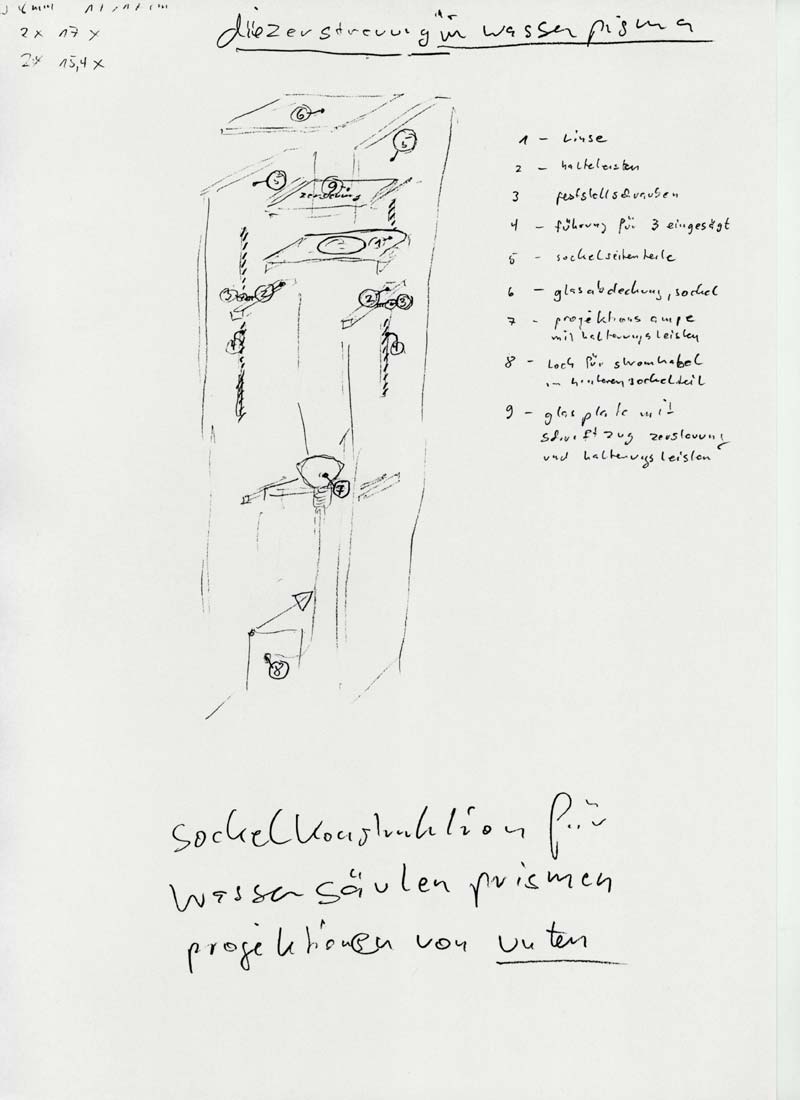 2 x 17 x
2 x 15,4 x
die zerstreuung im wasser pisma
6
5
5
9
zerstreuung
1
3
2
2
3
4
4
7
8
1 – Linse
2 – halteleisten
3 feststellschrauben
4 – führung für 3 eingesägt
5 – sockelseitenteile
6 – glasabdeckung, sockel
7 – projektions ampe
mit halterungsleisten
8 – loch für stromkabel
im hinteren sockelteil
9 – glasplatte mit
schriftzug zerstreuung
und halterungsleisten
sockelkonstruktion für
wassersäulen prismen
projektionen von unten